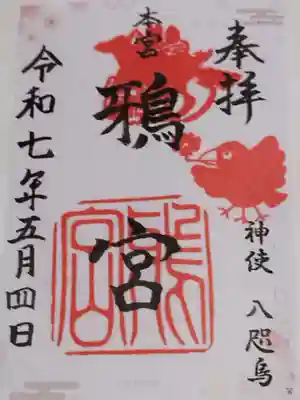 奉拝
神使 八咫烏
本宮
鴉宮
令和七年五月四日
鴉宮